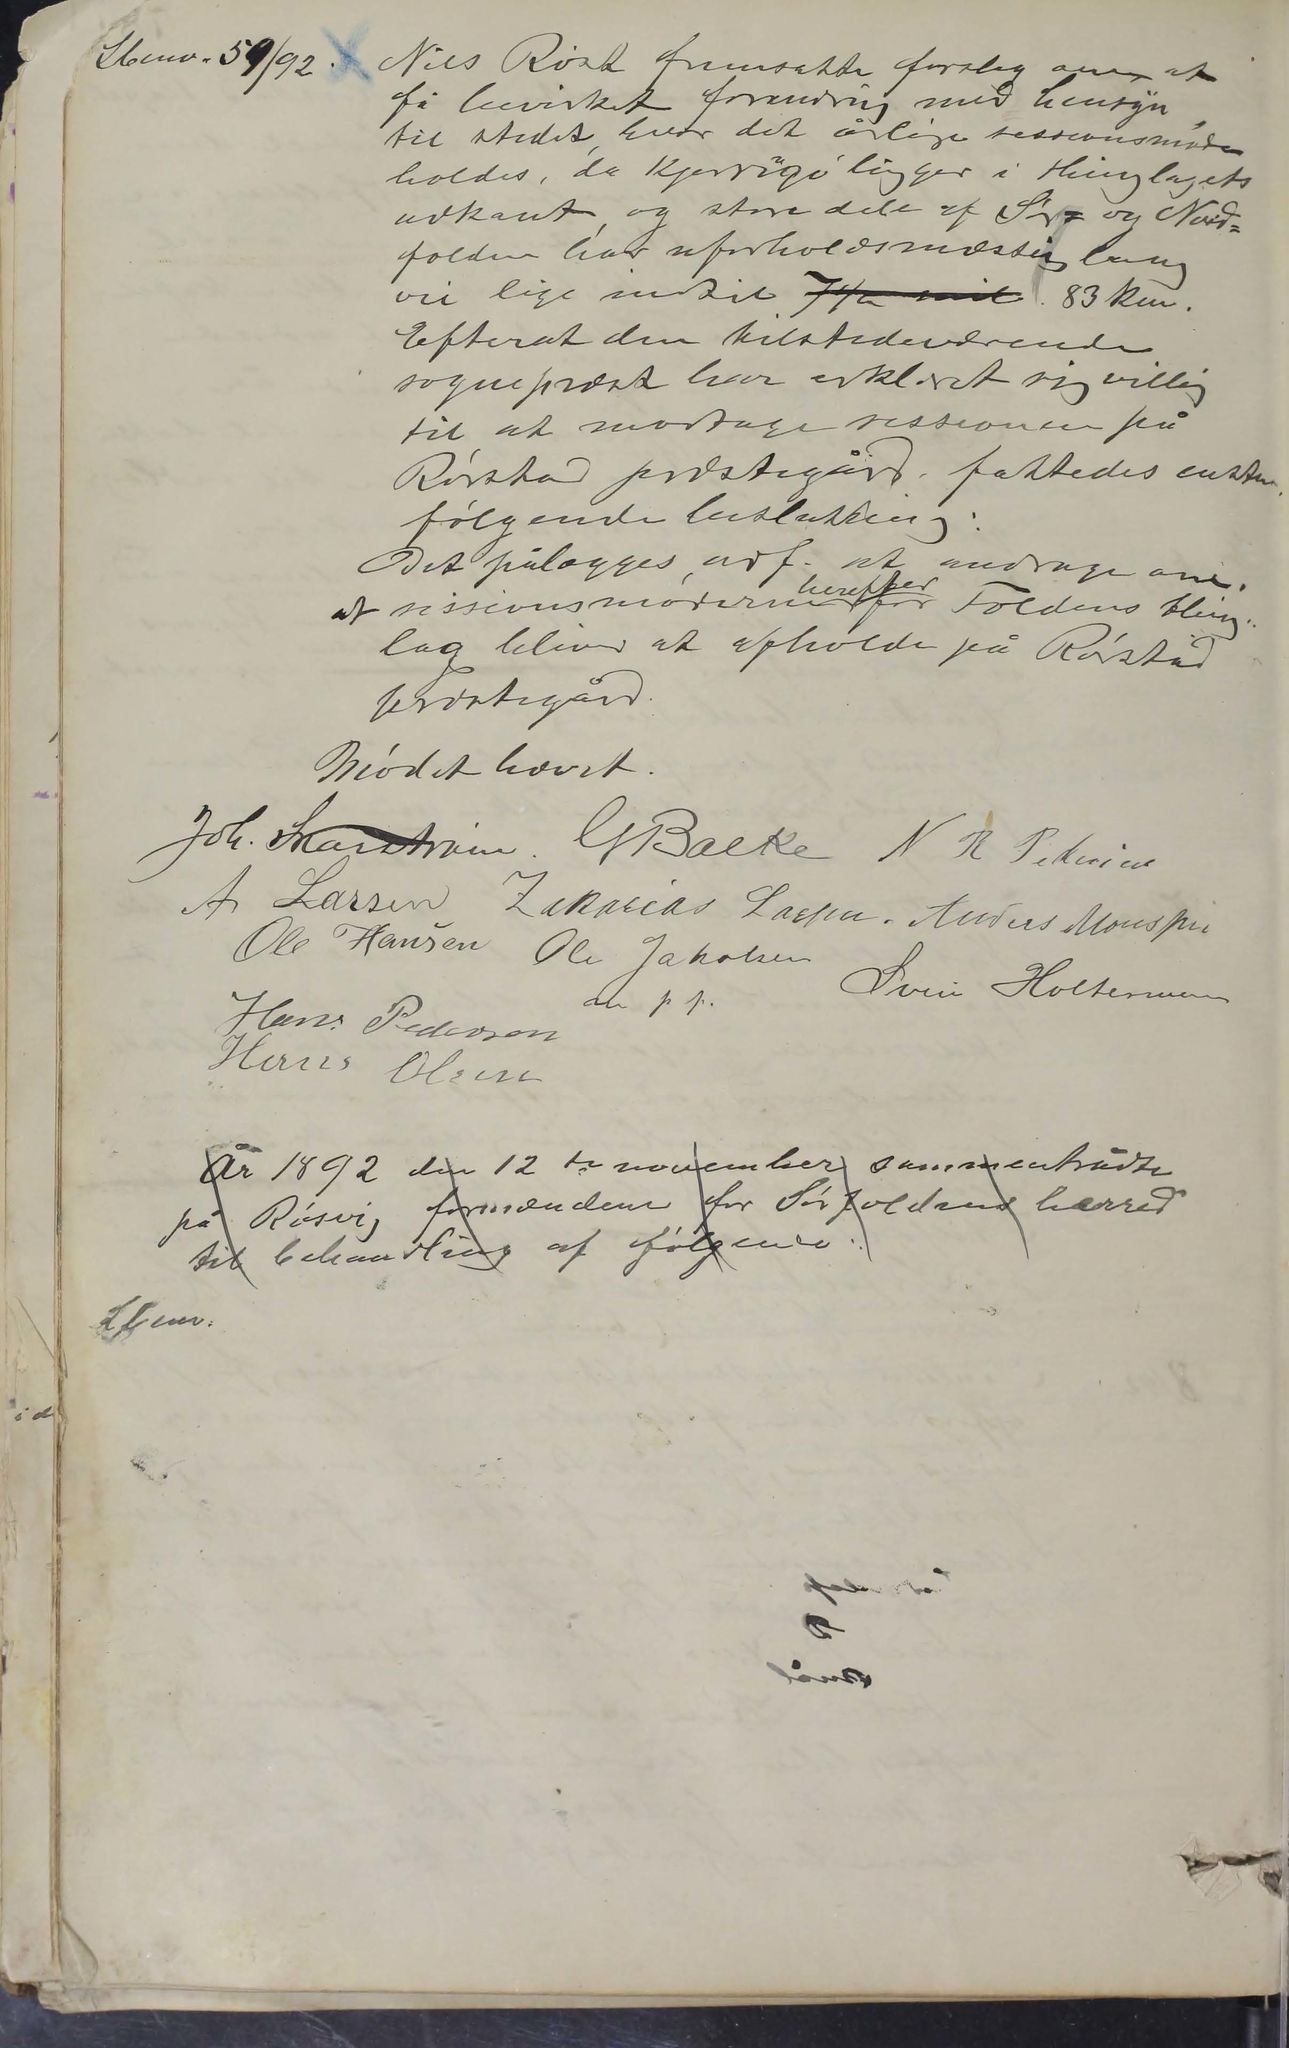 59/92. Niels Röst fremsatte forslag om at
få bevirket forandring med hensyn
til stedet, hvor det årlige sessionsmøde
holdes, da Kjerringö ligger i thinglagets
udkant, og store dele af Sør- og Nord=
folden har uforholdsmæssig lang
vei lige indtil 7½ mil. 83 km.
Efterat den tilstedeværende
sogneprest har erklæret sig villig
til at modtage sessionen på
Rørstad præstegård, fattedes enstem.
følgende beslutning:
Det pålægges ordf. at andrage om,
at sessionsmøderne herefter for Foldens thing-
lag bliver at afholde på Rørstad
præstegård.
Mödet hævet.
Joh. GBacke N R Pedersen
A Larsen Zakarias Larsen. Anders Monssen
Ole Hansen Ole Jakobsen Svein Holtermann
m p p.
Hans Pedersen
Hans Olsen
År 1892 den 12te november sammentrådte
på Røsvig formændene for Sörfoldens herred
til behandling af følgende: